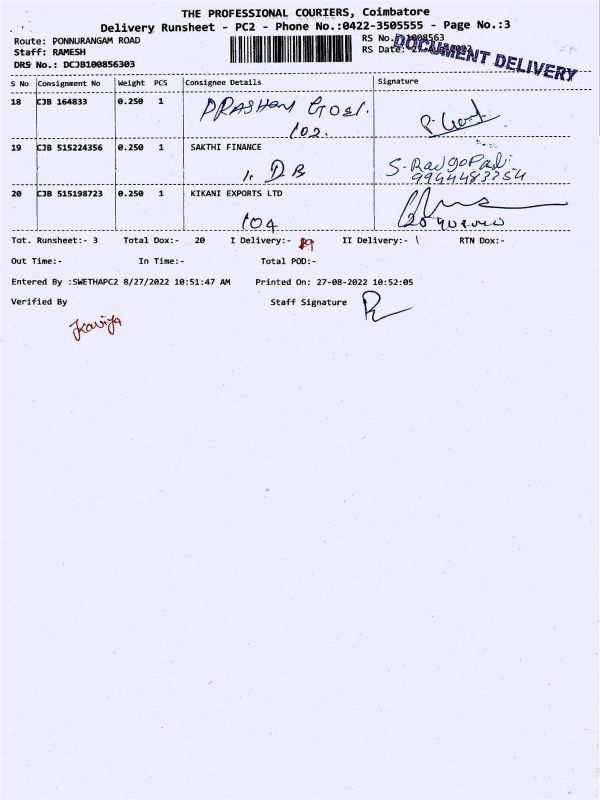 THE PROFESSIONAL COURIERS, Coimbatore
Delivery Runsheet - PC2 - Phone No.:0422-3505555 - Page No.:3
Route: PONNURANGAM ROAD
Staff: RAMESH
DRS No.: DCJB100856303
RS No.
RS Date: 27-Aug-2022
DOCUMENT DELIVERY
S No Consignment No Weight PCS Consignee Details Signature
18 CJB 164833 0.250 1 PRASHANT GOEL.
102.
19 CJB 515224356 0.250 1 SAKTHI FINANCE
1. DB
S. Rajgopal
9944483254
20 CJB 515198723 0.250 1 KIKANI EXPORTS LTD
104
Tot. Runsheet:- 3 Total Dox:- 20 I Delivery:- 19 II Delivery:- 1 RTN Dox:-
Out Time:- In Time:- Total POD:-
Entered By :SWETHAPC2 8/27/2022 10:51:47 AM Printed On: 27-08-2022 10:52:05
Verified By Staff Signature
Kaviya